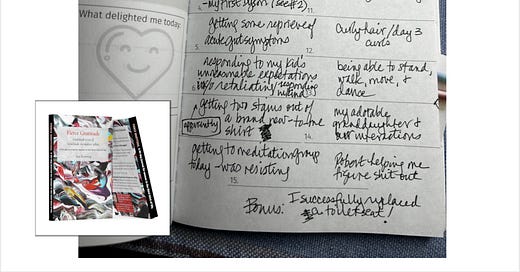 What delighted me today:
4.
11.
getting some reprieve of
acute gut symptoms
5.
Curly hair / day 3
curls
12.
responding to my kid's
unreasonable expectations
w/o retaliating
being able to stand,
walk, move, &
dance
getting two stains out of
a brand new-to-me
shirt
apparently
my adorable
granddaughter &
interactions
14.
getting to meditation group
today - was resisting
15.
Robert helping me
figure shit out
Bonus: I successfully replaced
toilet seat!
Fierce Gratitude